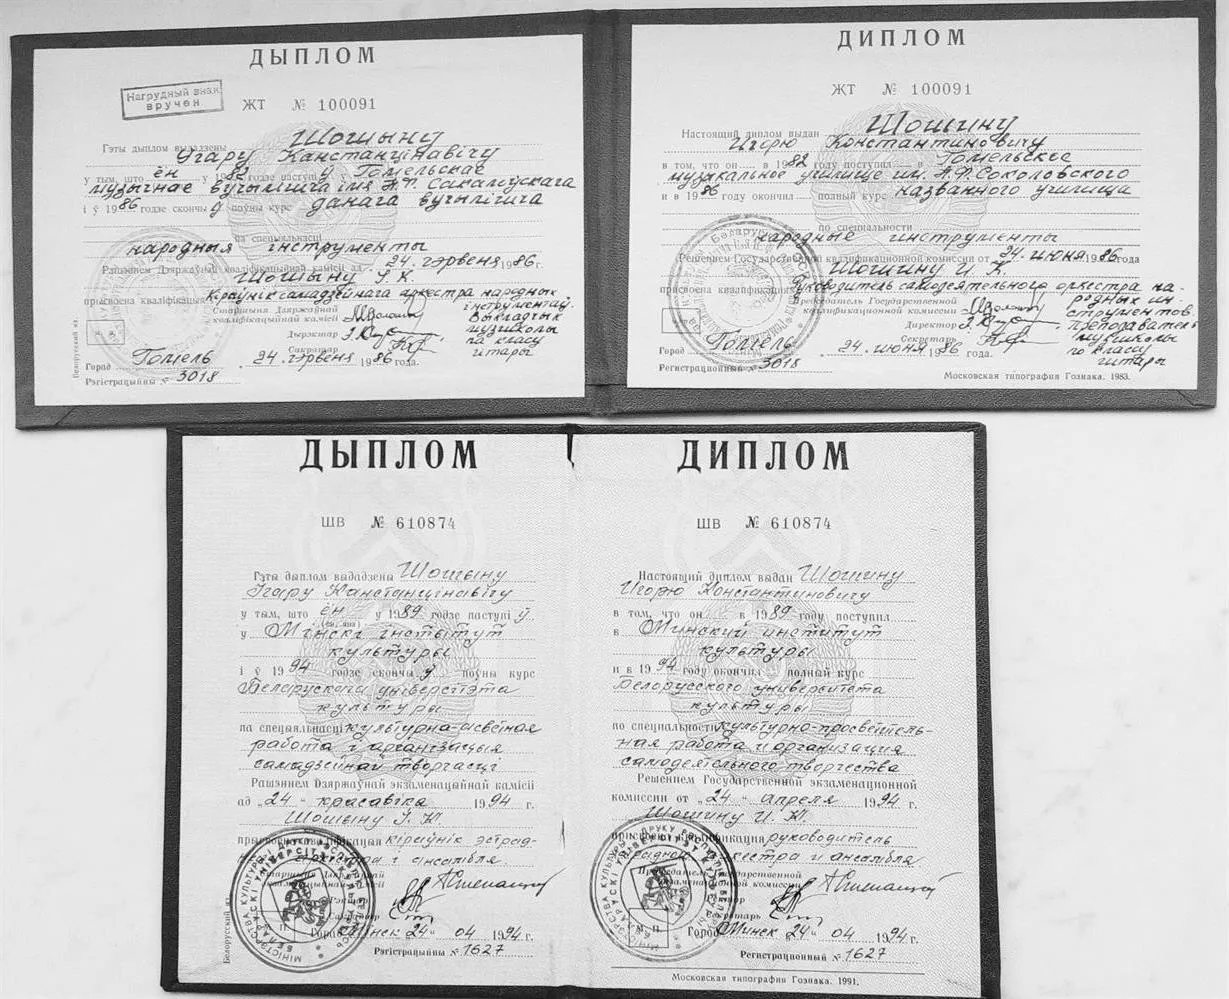 ДЫПЛОМ
Нагрудный знак
вручен
ЖТ № 100091
Гэты дыплом выдадзены Шошыну
Ігару Канстанцінавічу
у тым, што ён у 1982 годзе паступіў у Гомельскае
музычнае вучылішча імя Н.Ф. Сакалоўскага
і ў 1986 годзе скончыў поўны курс данага вучылішча
па спецыяльнасці
народныя інструменты
Рашэннем Дзяржаўнай кваліфікацыйнай камісіі ад 24. чэрвеня 1986 г.
Шошыну І. К.
прысвоена кваліфікацыя кіраўнік самадзейнага аркестра народных
інструментаў.
Старшыня Дзяржаўнай
кваліфікацыйнай камісіі
Выкладчык
музшколы
Дырэктар
па класу
Сакратар
гітары
Горад Гомель 24. чэрвеня 1986 года.
Рэгістрацыйны № 3018
Белорусский яз.
ДИПЛОМ
ЖТ № 100091
Настоящий диплом выдан Шошину
Игорю Константиновичу
в том, что он в 1982 году поступил в Гомельское
музыкальное училище им. Н.Ф. Соколовского
и в 1986 году окончил полный курс названного училища
по специальности
народные инструменты
Решением Государственной квалификационной комиссии от 24. июня 1986 года
Шошину И. К.
присвоена квалификация руководитель самодеятельного оркестра на-
родных ин-
Председатель Государственной
квалификационной комиссии
струментов.
Директор
преподаватель
Секретарь
музшколы
по классу
гитары
Город Гомель 24. июня 1986 года.
Регистрационный № 3018
Московская типография Гознака. 1983.
ДЫПЛОМ
ШВ № 610874
Гэты дыплом выдадзены Шошыну
Ігару Канстанцінавічу
у тым, што ён у 1989 годзе паступіў
у Мінскі інстытут
культуры
і ў 1994 годзе скончыў поўны курс
Беларускага універсітэта
культуры
па спецыяльнасці культурна-асветная
работа і арганізацыя
самадзейнай творчасці
Рашэннем Дзяржаўнай экзаменацыйнай камісіі
ад "24" красавіка 1994 г.
Шошыну І. К.
прысвоена кваліфікацыя кіраўнік эстрад-
аркестра і ансамбля
Горад Мінск "24" 04 1994 г.
Рэгістрацыйны № 1627
Белорусский яз.
ДИПЛОМ
ШВ № 610874
Настоящий диплом выдан Шошину
Игорю Константиновичу
в том, что он в 1989 году поступил
в Минский институт
культуры
и в 1994 году окончил полный курс
Белорусского университета
культуры
по специальности культурно-просветитель-
ная работа и организация
самодеятельного творчества
Решением Государственной экзаменационной
комиссии от "24" апреля 1994 г.
Шошину И. К.
присвоена квалификация руководитель
оркестра и ансамбля
Председатель Государственной
экзаменационной комиссии
Секретарь
М. П.
Город Минск "24" 04 1994 г.
Регистрационный № 1627
Московская типография Гознака. 1991.